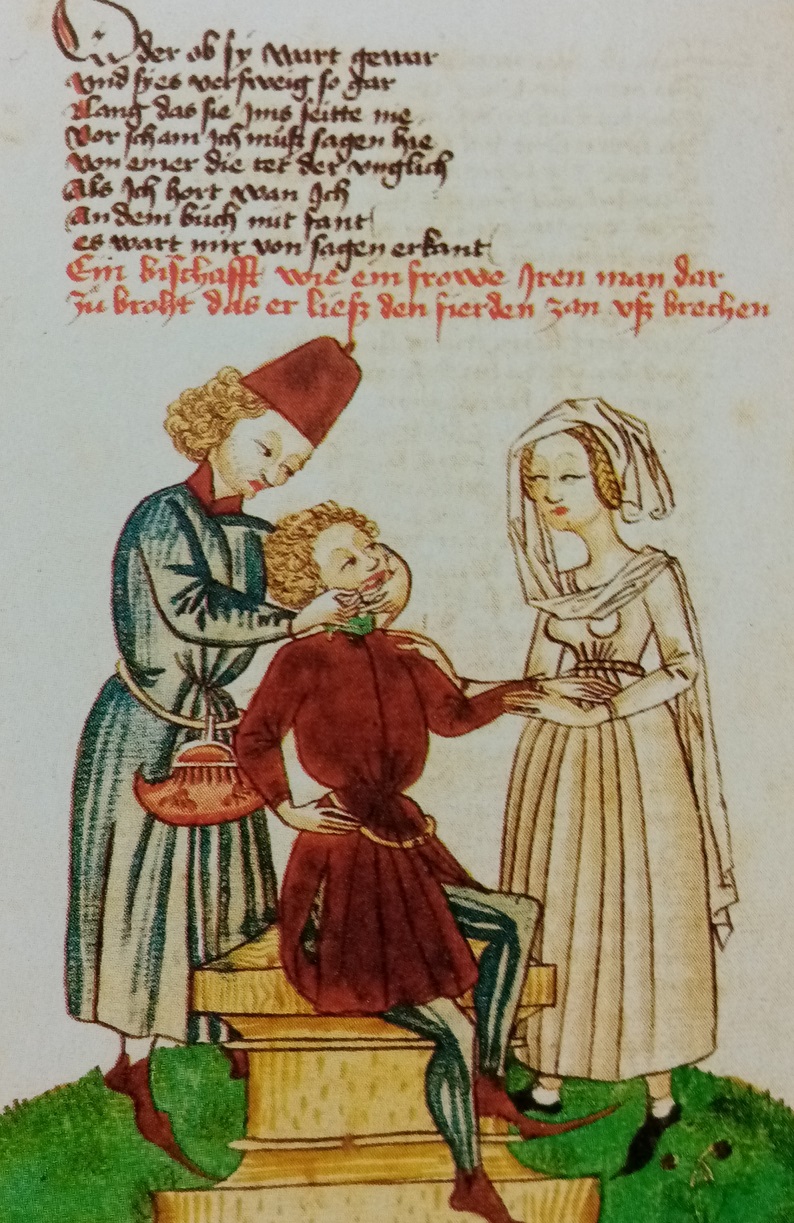 Oder ob sy wart gewar
Und sy es versweig so gar
Alang das sie Ims seitte nie
Vor scham Ich muß sagen hie
Von einer die tet der unglich
Als Ich hort wan Ich
An dem buch nit fant
es wart mir von sagen erkant
Ein bischafft wie ein frowe Iren man dar
zu broht das er ließ den fierden zan uß brechen